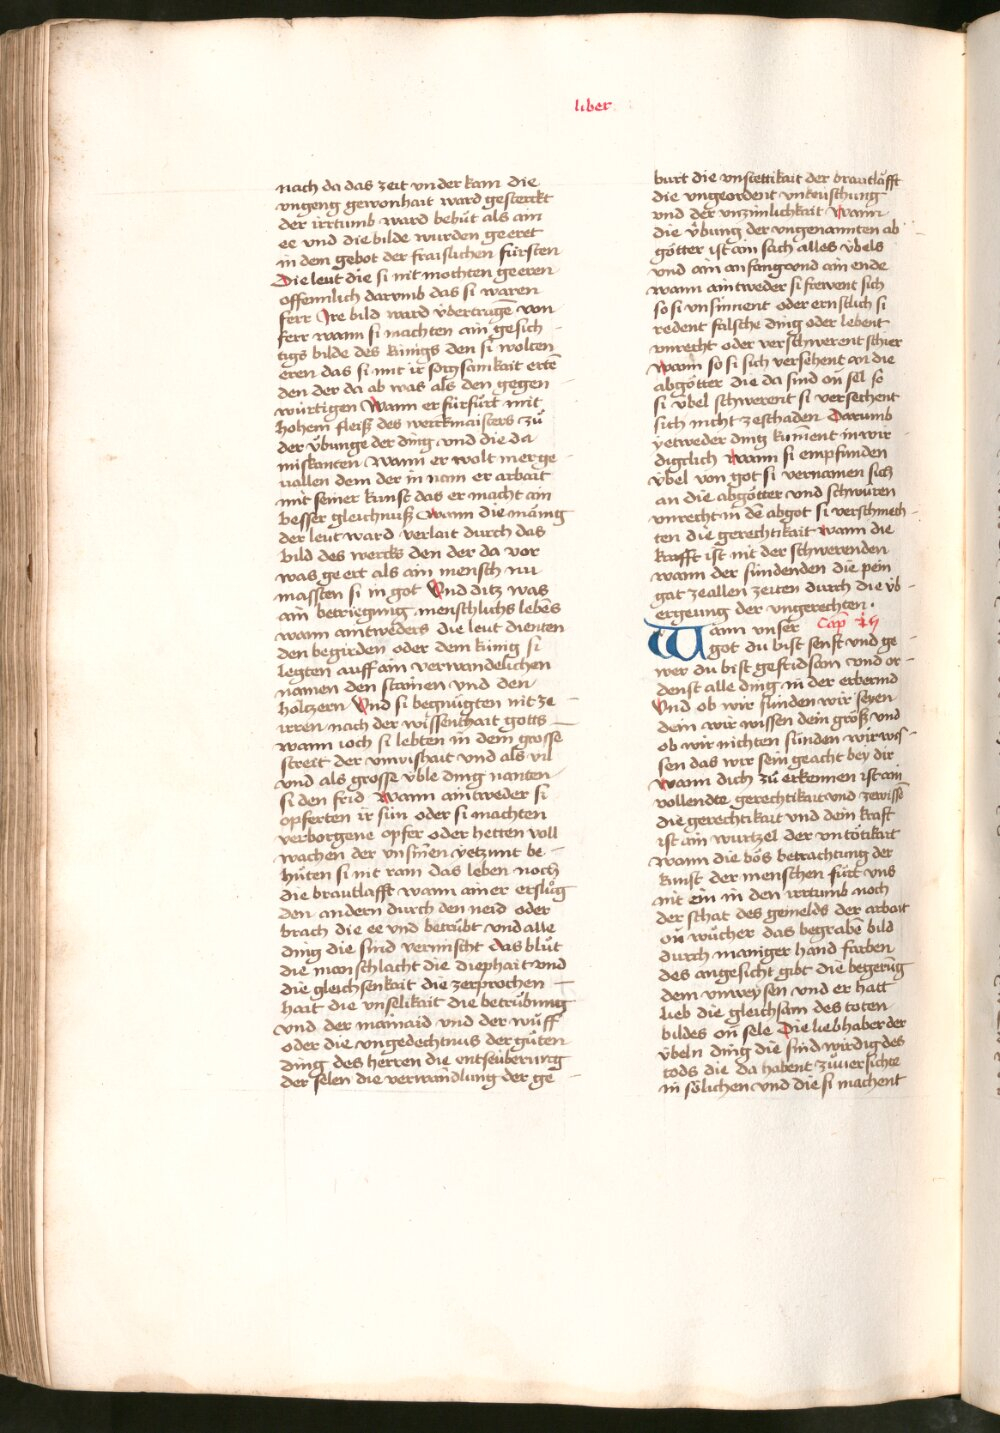 liber
nach da das zeit vnder kam die
vngeng gewonhait ward gesterckt
der irrtumb ward behůt als ain
ee vnd die bilde wurden geeret
in dem gebot der fraislichen fürsten
Die leut die si nit mochten geeren
offennlich darumb das si waren
ferr Ire bild ward v̈bertragē von
ferr wann si machten ain gesich
tigs bilde des kůnigs den si wolten
eren das si mit ir sorgsamkait ertē
den der da ab was als den gegen
würtigen Wann er fürfůrt mit
hohem fleiß des werckmaisters zů
der v̈bunge der ding vnd die da
miskanten Wann er wolt merge
uallen dem der in nam er arbait
mit seiner kunst das er macht ain
besser gleichnuß Wann die mänig
der leut ward verlait durch das
bild des wercks den der da vor
was geert als ain mensch nu
massten si in got Vnd ditz was
ain betriegnung menschlichs lebēs
wann aintweders die leut dienten
den begirden oder dem kůnig si
legten auff ain verwandelichen
namen den stainen vnd den
höltzern Vnd si begnügten nit ze
irren nach der wissenthait gotts
wann ioch si lebten in dem grosse
streit der vnwishait vnd als vil
vnd als grosse v̈ble ding nanten
si den frid Wann aintweder si
opferten ir sün oder si machten
verborgene opfer oder hetten voll
wachen der vnsinnen yetzunt be
hůten si nit rain das leben noch
die brautlafft wann ainer erslůg
den andern durch den neid oder
brach die ee vnd betrübt vnd alle
ding die sind vermischt das blůt
die manschlacht die diephait vnd
die gleichsenkait die zerprochen
hait die vnselikait die betrübung
vnd der mainaid vnd der wůff
oder die vngedechtnus der gůten
ding des herren die entseüberung
der selen die verwandlung der ge
burt die vnstettikait der brautläfft
die vngeordent vnkeuschung
vnd der vnzimlichkait Wann
die v̈bung der vngenannten ab
götter ist ain sach alles v̈bels
vnd ain anfang vnd ain ende
wann aintweder si frewent sich
so si vnsinnent oder ernstlich si
redent falsche ding oder lebent
vnrecht oder verschwerent schier
Wann so si sich versehent an die
abgötter die da sind on̄ sel so
si v̈bel schwerent si versechent
sich nicht zeschaden Darumb
yetweder ding kumment in wir
digclich Wann si empfunden
v̈bel von got si vernamen sich
an die abgötter vnd schwůren
vnrecht in dē abgot si verschmech
ten die gerechtikait Wann die
krafft ist nit der schwerenden
wann der sündenden die pein
gat zeallen zeiten durch die v̈b
ergeung der vngerechten.
Wann vnser
got du bist senfft vnd ge
wer du bist gefridsam vnd or
denst alle ding in der erbermd
Vnd ob wir sünden wir seyen
dein wir wissen dein größ vnd
ob wir nichten sünden wir wis
sen das wir sein geacht bey dir
Wann dich zů erkennen ist ain
vollendte gerechtikait vnd zewissē
die gerechtikait vnd dein kraft
ist ain wurtzel der vntötikait
wann die bös betrachtung der
kunst der menschen fürt vns
nit ein in den irrtumb noch
der schat des gemelds der arbait
on̄ wůcher das begrabē bild
durch maniger hand farben
des angesicht gibt die begerūg
dem vnweysen vnd er hatt
lieb die gleichsam des toten
bildes on̄ sele Die liebhaber der
v̈beln ding die sind wirdig des
tods die da habent zůuersichte
in sölichen vnd die si machent